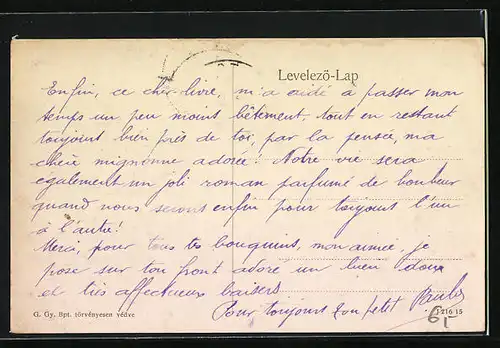 Levelező-Lap
Enfin, ce cher livre, m'a aidé à passer mon
temps un peu moins bêtement, tout en restant
toujours bien près de toi, par la pensée, ma
chère mignonne adorée! Notre vie sera
également un joli roman parfumé de bonheur
quand nous serons enfin pour toujours l'un
à l'autre!
Merci, pour tous tes bouquins, mon aimée, je
pose sur ton front adoré un bien doux
et très affectueux baisers.
Pour toujours ton petit
G. Gy. Bpt. törvényesen védve
216 15
6,-